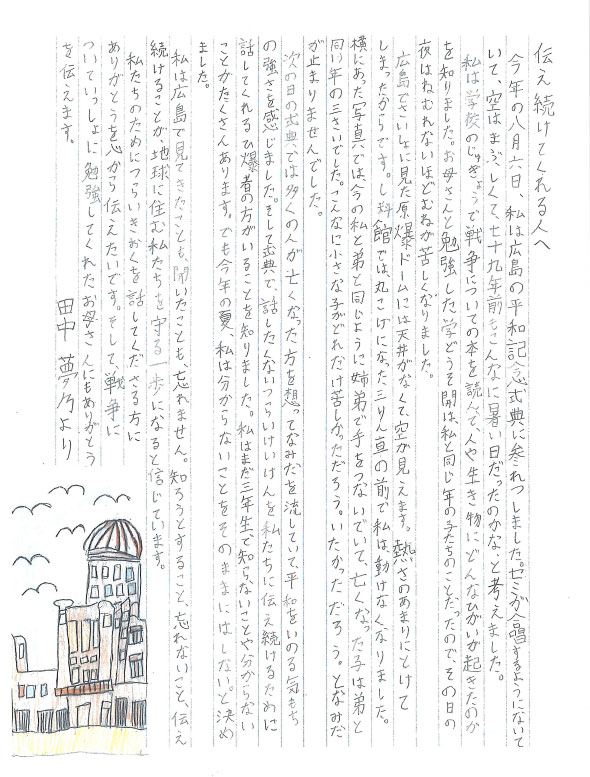 伝え続けてくれる人へ
今年の八月六日、私は広島の平和記念式典に参れつしました。ゼミが合唱するようにないて
いて、空はまぶしくて、七十九年前もこんなに暑い日だったのかな、と考えました。
私は学校のじゅぎょうで戦争についての本を読んで、人や生き物にどんなひがいが起きたのか
を知りました。お母さんと勉強した学どうそ開は、私と同じ年の子たちのことだったので、その日の
夜はねむれないほどむねが苦しくなりました。
広島でさいしょに見た原爆ドームには天井がなくて、空が見えます。熱さのあまりにとけて
しまったからです。し料館では丸こげになった三りん車の前で私は、動けなくなりました。
横にあった写真では、今の私と弟と同じように姉弟で手をつないでいて、亡くなった子は弟と
同い年の三さいでした。こんなに小さな子がどれだけ苦しかっただろう。いたかっただろう。となみだ
が止まりませんでした。
次の日の式典では多くの人が亡くなった方を想ってなみだを流していて、平和をいのる気もち
の強さを感じました。そして式典で、話したくないつらいけいけんを私たちに伝え続けるために
話してくれるひ爆者の方がいることを知りました。私はまだ三年生で知らないことや分からない
ことがたくさんあります。でも今年の夏、私は分からないことをそのままにはしない。と決め
ました。
私は広島で見てきたことも、聞いたことも、忘れません。知ろうとすること、忘れないこと、伝え
続けることが、地球に住む私たちを守る一歩になると信じています。
私たちのためにつらいきおくを話してくださる方に
ありがとうを心から伝えたいです。そして、戦争に
ついていっしょに勉強してくれたお母さんにもありがとう
を伝えます。
田中 夢乃より